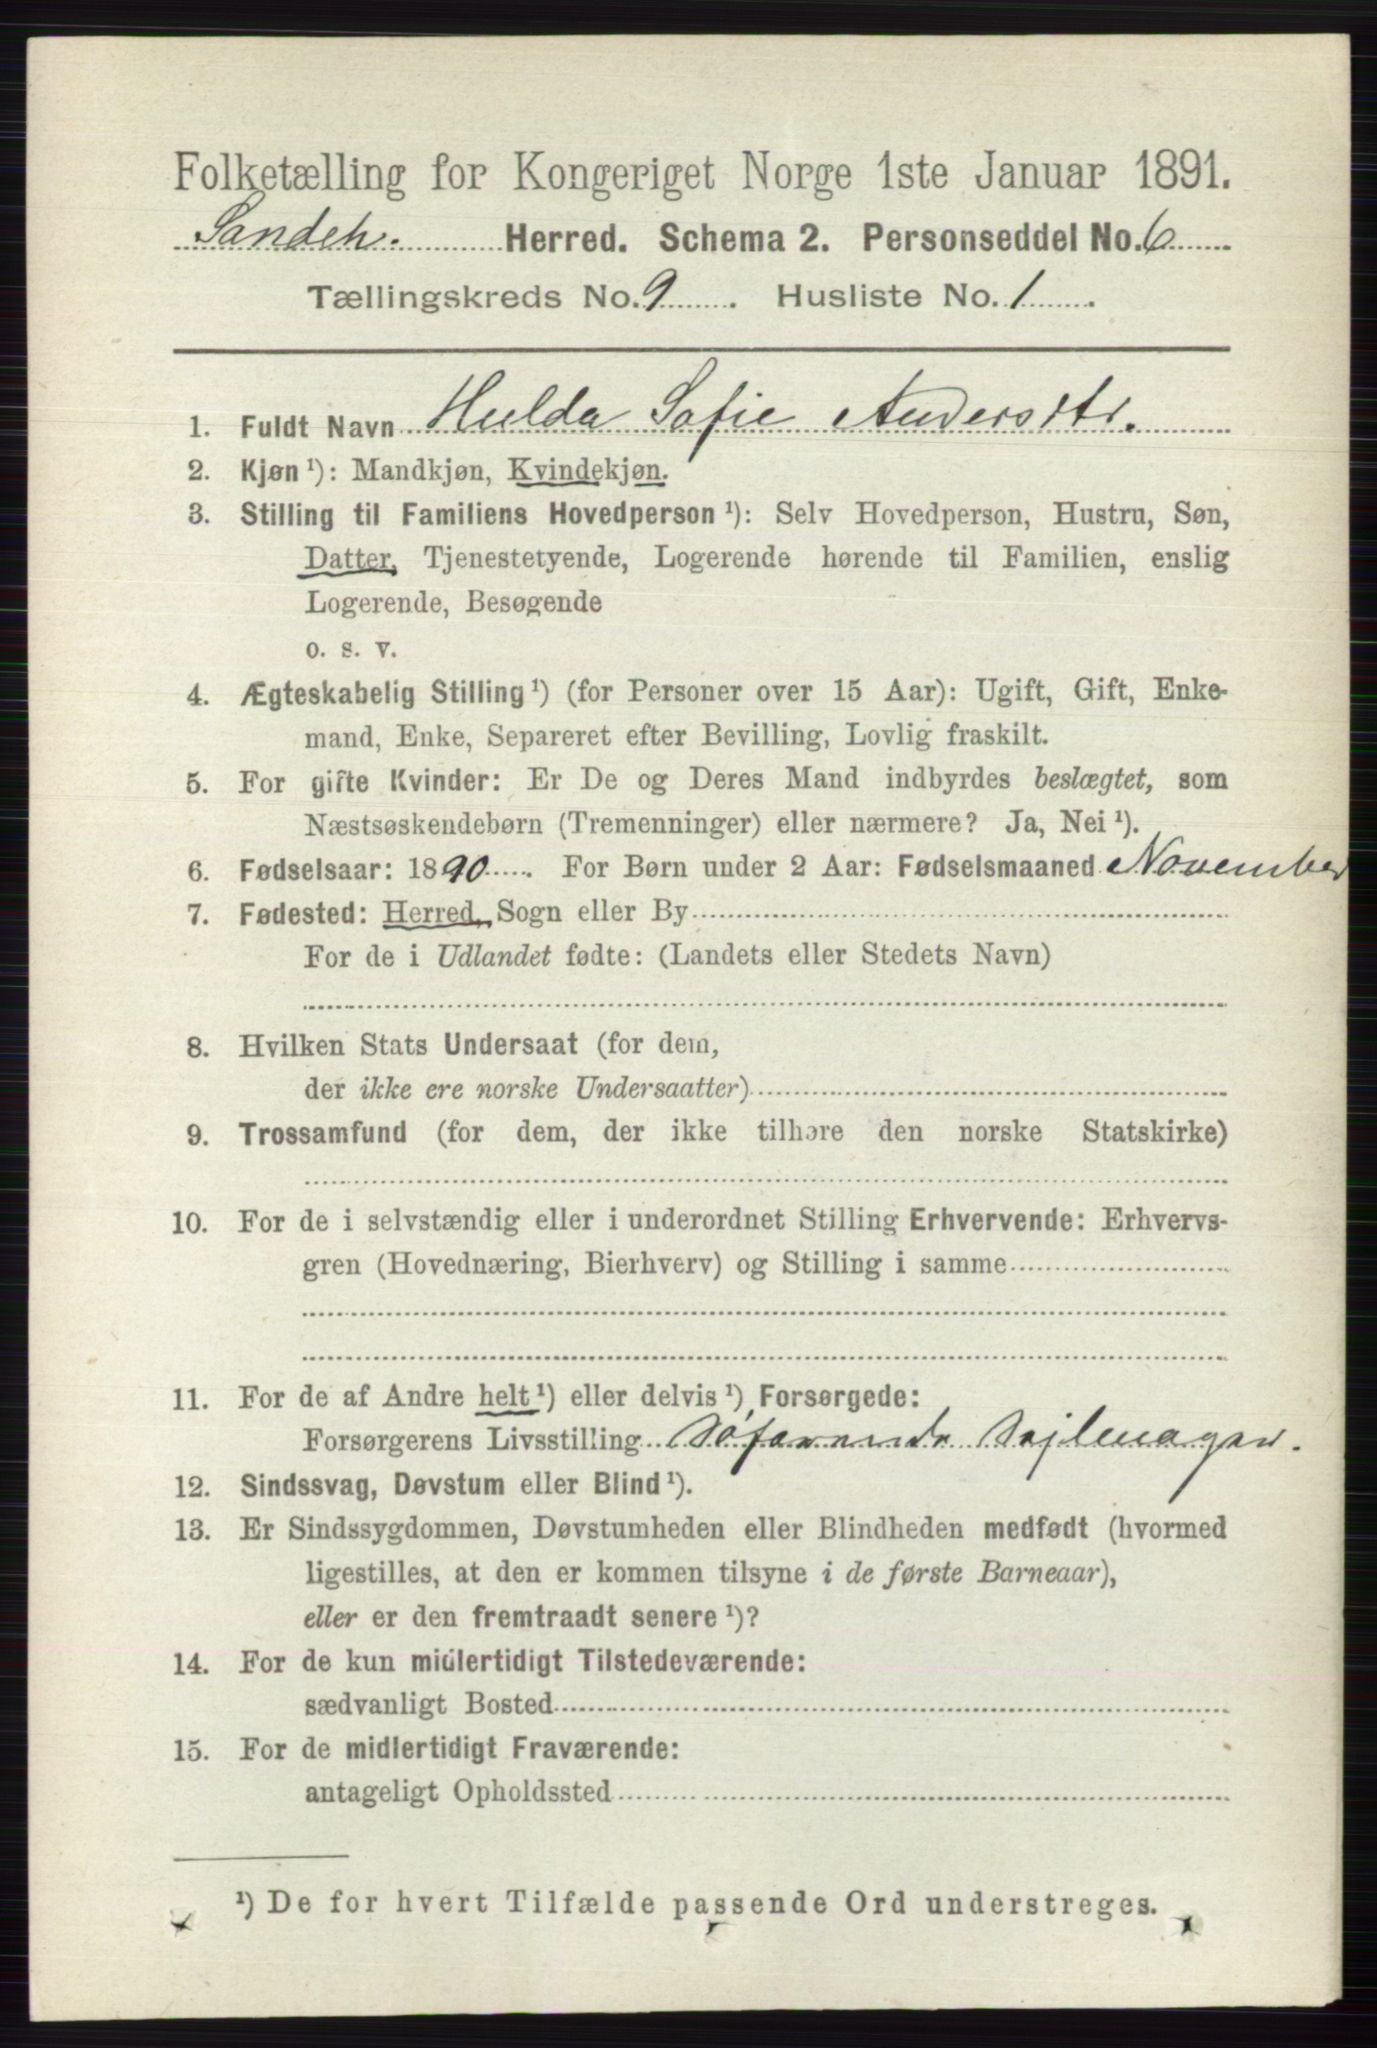 Folketælling for Kongeriget Norge 1ste Januar 1891.
Sandeh. Herred. Schema 2. Personseddel No. 6
Tællingskreds No. 9. Husliste No. 1.
1. Fuldt Navn Hulda Sofie Andersdtr.
2. Kjøn ¹): Mandkjøn, Kvindekjøn.
3. Stilling til Familiens Hovedperson ¹): Selv Hovedperson, Hustru, Søn,
Datter, Tjenestetyende, Logerende hørende til Familien, enslig
Logerende, Besøgende
o. s. v.
4. Ægteskabelig Stilling ¹) (for Personer over 15 Aar): Ugift, Gift, Enke-
mand, Enke, Separeret efter Bevilling, Lovlig fraskilt.
5. For gifte Kvinder: Er De og Deres Mand indbyrdes beslægtet, som
Næstsøskendebørn (Tremenninger) eller nærmere? Ja, Nei ¹).
6. Fødselsaar: 1890. For Børn under 2 Aar: Fødselsmaaned November
7. Fødested: Herred, Sogn eller By
For de i Udlandet fødte: (Landets eller Stedets Navn)
8. Hvilken Stats Undersaat (for dem,
der ikke ere norske Undersaatter)
9. Trossamfund (for dem, der ikke tilhøre den norske Statskirke)
10. For de i selvstændig eller i underordnet Stilling Erhvervende: Erhvervs-
gren (Hovednæring, Bierhverv) og Stilling i samme
11. For de af Andre helt ¹) eller delvis ¹) Forsørgede:
Forsørgerens Livsstilling Søfarende Sejlmager.
12. Sindssvag, Døvstum eller Blind ¹).
13. Er Sindssygdommen, Døvstumheden eller Blindheden medfødt (hvormed
ligestilles, at den er kommen tilsyne i de første Barneaar),
eller er den fremtraadt senere ¹)?
14. For de kun midlertidigt Tilstedeværende:
sædvanligt Bosted
15. For de midlertidigt Fraværende:
antageligt Opholdssted
¹) De for hvert Tilfælde passende Ord understreges.